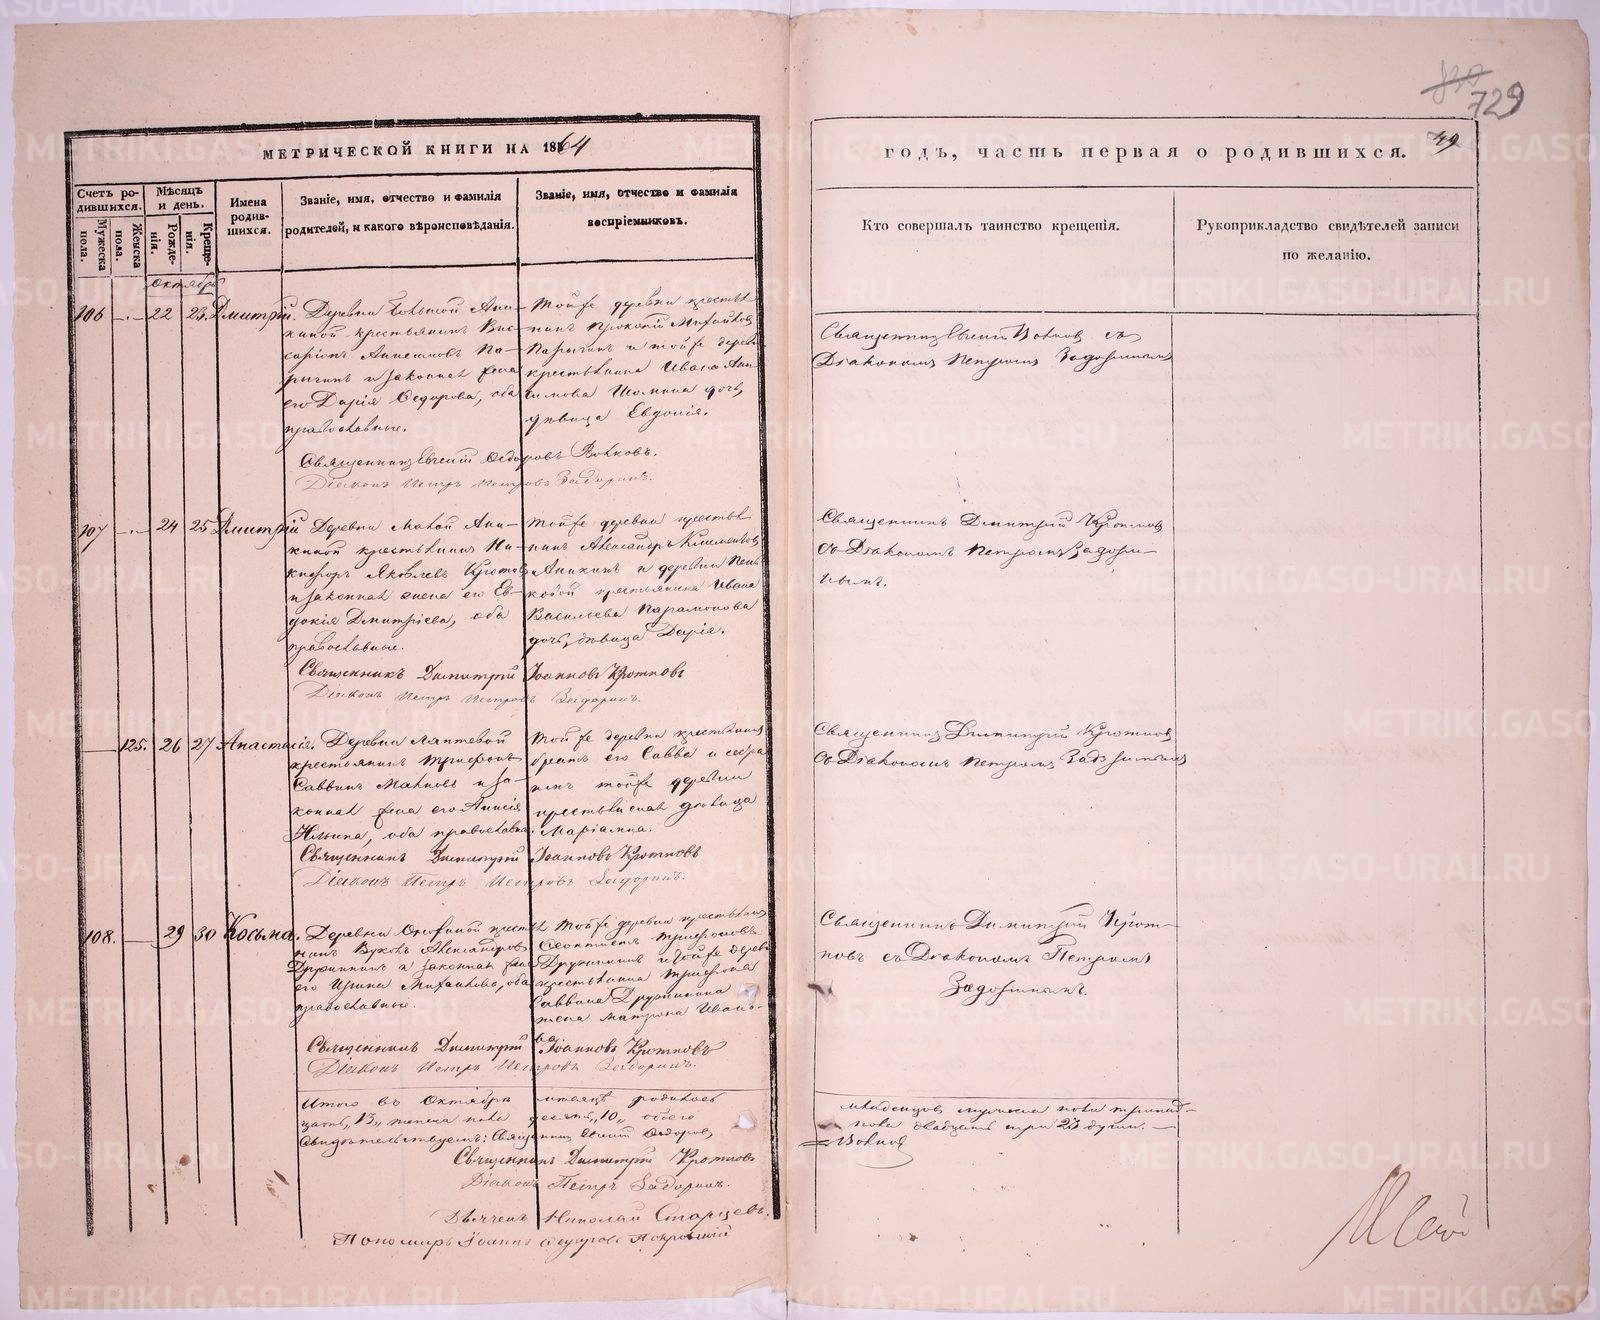 729
49
МЕТРИЧЕСКОЙ КНИГИ НА 1864
годъ, часть первая о родившихся.
Счетъ родившихся.
Мужеска пола.
Женска пола.
Мѣсяцъ и день.
Рожденія.
Крещенія.
Имена родившихся.
Званіе, имя, отчество и фамилія
родителей, и какого вѣроисповѣданія.
Званіе, имя, отчество и фамилія
воспріемниковъ.
Кто совершалъ таинство крещенія.
Рукоприкладство свидѣтелей записи
по желанію.
Октябрь
106 22 23. Дмитрій.
Деревни Большой Ани-
киной крестьянинъ Вис-
саріонъ
и законная жена
его Дарія Ѳедорова, оба
православные.
Тойже деревни крестья-
нинъ Прокопій Михайловъ
и тойже деревни
крестьянина Ивана
дочь,
дѣвица Евдокія.
Священникъ Евгеній Ѳедоровъ Волковъ.
Діаконъ Петръ Петровъ Задоринъ.
Священникъ Евгеній Волковъ съ
Діакономъ Петромъ Задоринымъ
107 24 25 Дмитрій
Деревни Малой Ани-
киной крестьянинъ Ни-
кифоръ Яковлевъ
и законная жена его Ев-
докія Дмитріева, оба
православные.
Тойже деревни крестья-
нинъ Александръ Климентовъ
Аникинъ и деревни
крестьянина Ивана
Васильева Парамонова
дочь, дѣвица Дарія.
Священникъ Димитрій Іоанновъ Кротковъ
Діаконъ Петръ Петровъ Задоринъ.
Священникъ Димитрій Кротковъ
съ Діакономъ Петромъ Задори-
нымъ.
125. 26 27 Анастасія.
Деревни Лаптевой
крестьянинъ Трифонъ
Саввинъ и за-
конная жена его Анисія
Ильина, оба православные.
Тойже деревни крестьянинъ
братъ его Савва и
тойже деревни
крестьянская дѣвица
Маріамна.
Священникъ Димитрій Іоанновъ Кротковъ
Діаконъ Петръ Петровъ Задоринъ.
Священникъ Димитрій Кротковъ
съ Діакономъ Петромъ Задоринымъ
108. 29 30 Косьма.
Деревни крестья-
нинъ Александровъ
Дружининъ и законная жена
его Ирина Михайлова, оба
православные.
Тойже деревни крестьянинъ
Трифоновъ
Дружининъ и тойже деревни
крестьянина Трифона
Саввина Дружинина
жена Матрона Ивано-
ва.
Священникъ Димитрій Іоанновъ Кротковъ
Діаконъ Петръ Петровъ Задоринъ.
Священникъ Димитрій Крот-
ковъ съ Діакономъ Петромъ
Задоринымъ.
Итого въ Октябрѣ мѣсяцѣ родилось младенцовъ мужеска пола тринад-
цать „13„ женска пола десять „10„ обоего пола двадцать три 23 души.
Свидѣтельствуемъ: Священникъ Евгеній Ѳедоровъ Волковъ
Священникъ Димитрій Кротковъ
Діаконъ Петръ Задоринъ.
Дьячекъ Николай Старцевъ.
Пономарь Іоаннъ Ѳедоровъ Покровскій
METRIKI.GASO-URAL.RU